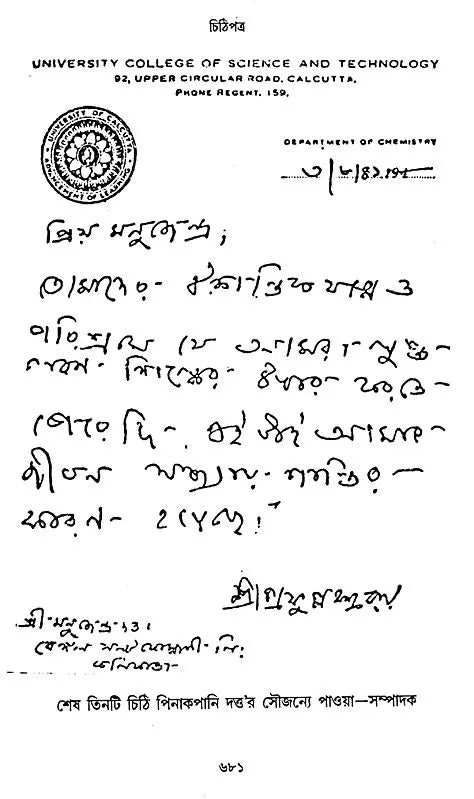 চিঠিপত্র
UNIVERSITY COLLEGE OF SCIENCE AND TECHNOLOGY
92, UPPER CIRCULAR ROAD, CALCUTTA.
PHONE REGENT. 159.
UNIVERSITY OF CALCUTTA
ADVANCEMENT OF LEARNING
DEPARTMENT OF CHEMISTRY
প্রিয় মনুজেন্দ্র,
তোমাদের ঐকান্তিক যত্নে ও
পরিশ্রমে যে আমরা লুপ্ত-
লবণ শিল্পের উদ্ধার করতে
পেরেছি- এই আমার
জীবন সন্ধ্যায় শান্তির
কারণ হয়েছে!
শ্রীপ্রফুল্লচন্দ্র রায়
শ্রী মনুজেন্দ্র
বেঙ্গল সল্ট কোম্পানী লি:
শেষ তিনটি চিঠি পিনাকপানি দত্ত'র সৌজন্যে পাওয়া—সম্পাদক
৬৮১